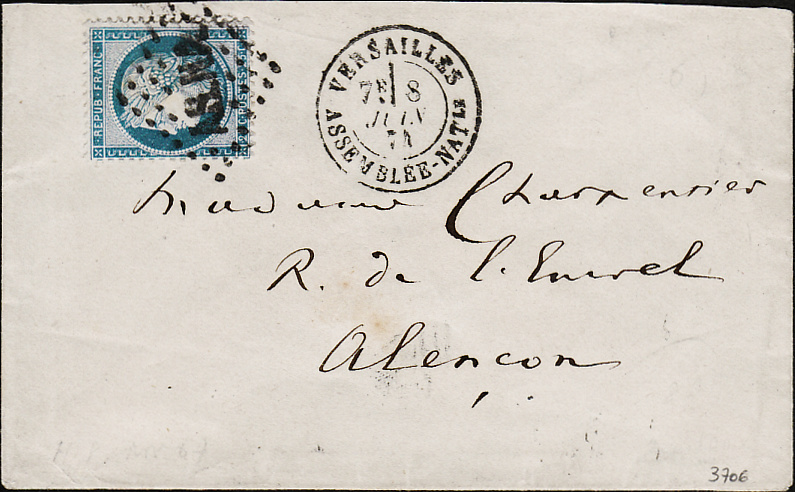 REPUB·FRANC·
25 C·POSTES·25
VERSAILLES
7E 8
JUIN
74
ASSEMBLÉE-NATLE
Madame Charpentier
R. de l'
Alençon
3706